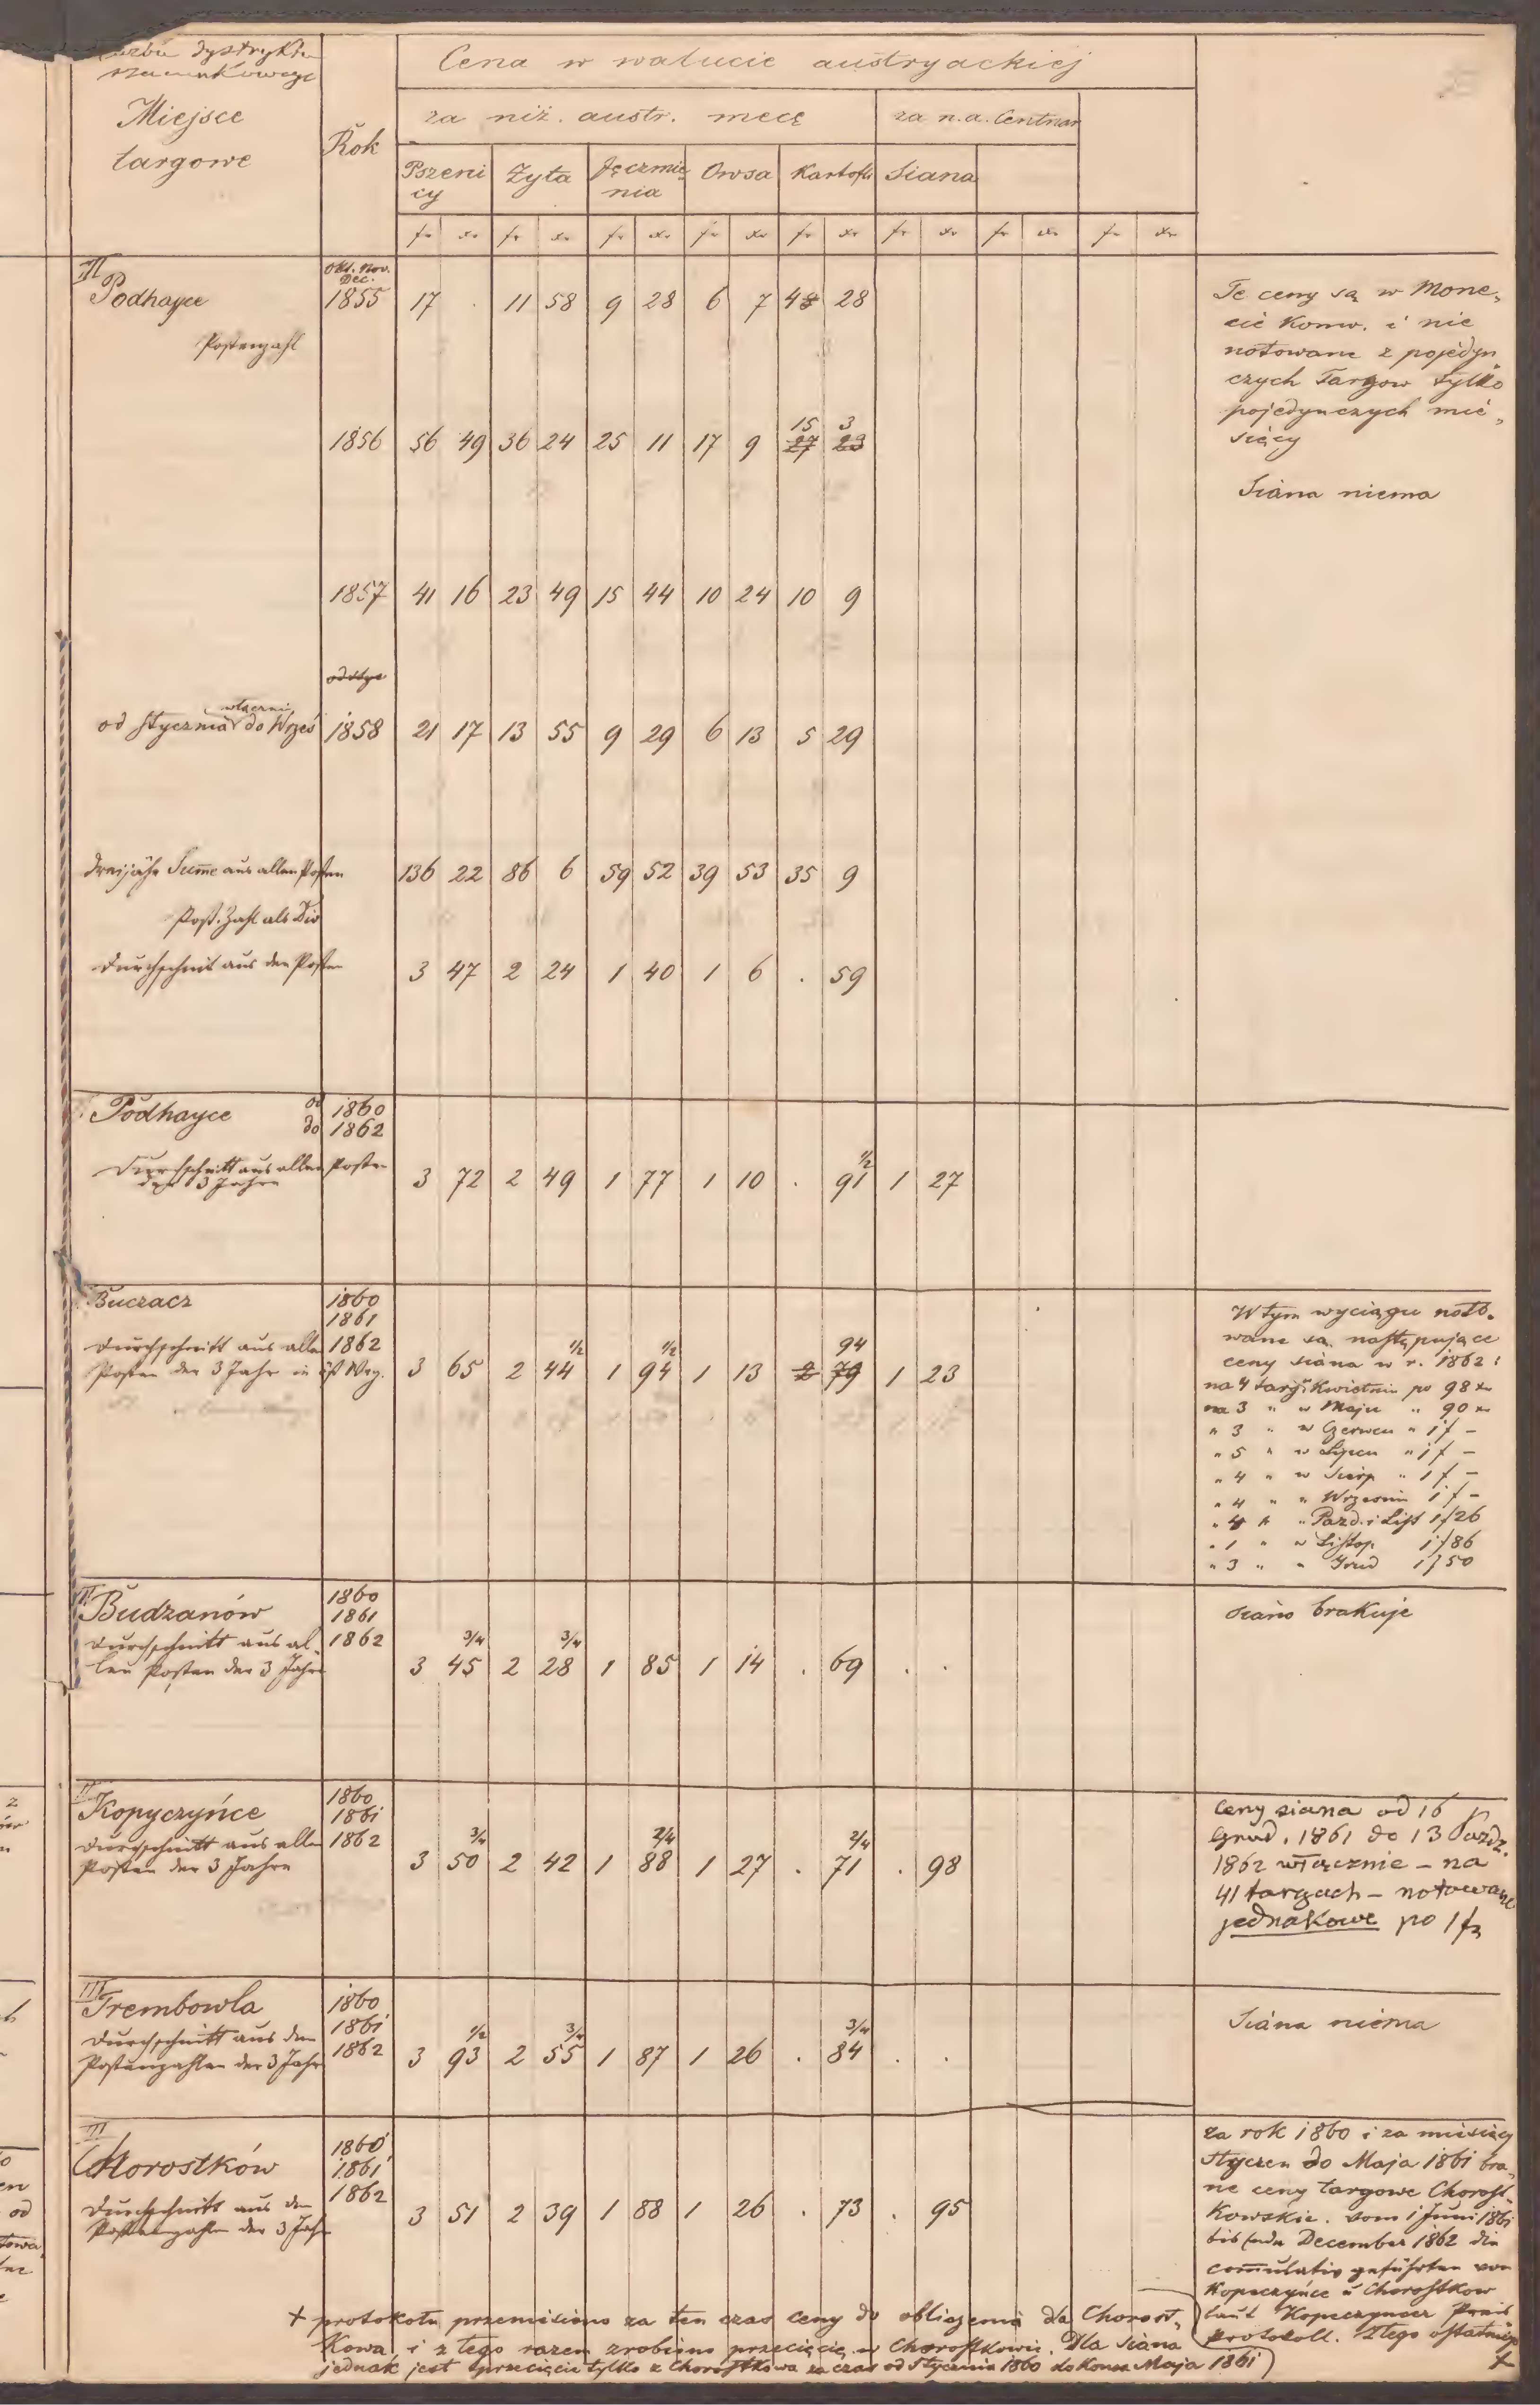 dystryktu
szacunkowego
Miejsce
targowe
Rok
Cena w walucie austryackiej
za niż. austr. mecę
za n.a. Centnar
Pszeni
cy
Żyta
Jęczmie
nia
Owsa
Kartofli
Siana
fr xr fr xr fr xr fr xr fr xr fr xr fr xr fr xr
II
Podhayce
Okt. Nov.
Dec.
1855 17 . 11 58 9 28 6 7 4 28
Postenzahl
Te ceny są w Mone-
cie Konw. i nie
notowane z pojedyn
czych Targow tylko
pojedynczych mie-
sięcy
Siana niema
15 3
1856 56 49 36 24 25 11 17 9 27 23
1857 41 16 23 49 15 44 10 24 10 9
włącznie
od Stycznia do Wrześ 1858 21 17 13 55 9 29 6 13 5 29
dreijähr Summe aus allen Posten 136 22 86 6 59 52 39 53 35 9
Post. Zahl als Div
Durchschnit aus den Posten 3 47 2 24 1 40 1 6 . 59
Podhayce od 1860
do 1862
Durchschnitt aus allen Posten
der 3 Jahre 3 72 2 49 1 77 1 10 . 91 1/2 1 27
Buczacz 1860
1861
Durchschnitt aus allen 1862
Posten der 3 Jahr in öst Wrg. 3 65 2 44 1/2 1 94 1/2 1 13 2 79 94 1 23
W tym wyciągu noto-
wane są następujące
ceny siana w r. 1862:
na 4 targ. Kwietniu po 98 xr
na 3 " w Maju " 90 xr
" 3 " w Czerwcu " 1 f -
" 5 " w Lipcu " 1 f -
" 4 " w Sierp " 1 f -
" 4 " " Wrzesniu 1 f -
" 4 " " Pazd. i List 1 f 26
" 1 " w Listop 1 f 86
" 3 " " Grud 1 f 50
II
Budzanów 1860
1861
Durchschnitt aus al- 1862
len Posten der 3 Jahre 3 45 3/4 2 28 3/4 1 85 1 14 . 69 . .
siano brakuje
II
Kopyczyńce 1860
1861
Durchschnitt aus allen 1862
Posten der 3 Jahre 3 50 3/4 2 42 1 88 2/4 1 27 . 71 2/4 . 98
Ceny siana od 16
Grud. 1861 do 13 Pazdz.
1862 włącznie - na
41 targach - notowane
jednakowe po 1 fr
III
Trembowla 1860
1861
Durchschnitt aus den 1862
Postenzahlen der 3 Jahr 3 93 1/2 2 55 3/4 1 87 1 26 . 84 3/4 . .
Siana niema
III
Chorostków 1860
1861
Durchschnitt aus den 1862
Postenzahlen der 3 Jahr 3 51 2 39 1 88 1 26 . 73 . 95
za rok 1860 i za miesięcy
Styczen do Maja 1861 bra-
ne ceny targowe Chorost-
kowskie. vom 1 Juni 1861
bis Ende December 1862 die
comulativ geführten von
Kopeczyńce u Chorostkow
laut Kopeczyncer Preis
protokoll. Z tego ostatniego
+
+ protokołu przemisiono za ten czas ceny do obliczenia dla Chorost-
kowa i z tego razem zrobiono przecięcie w Chorostkowie. Dla siana
jednak jest przecięcie tylko z Chorostkowa za czas od Stycznia 1860 do Konca Maja 1861)